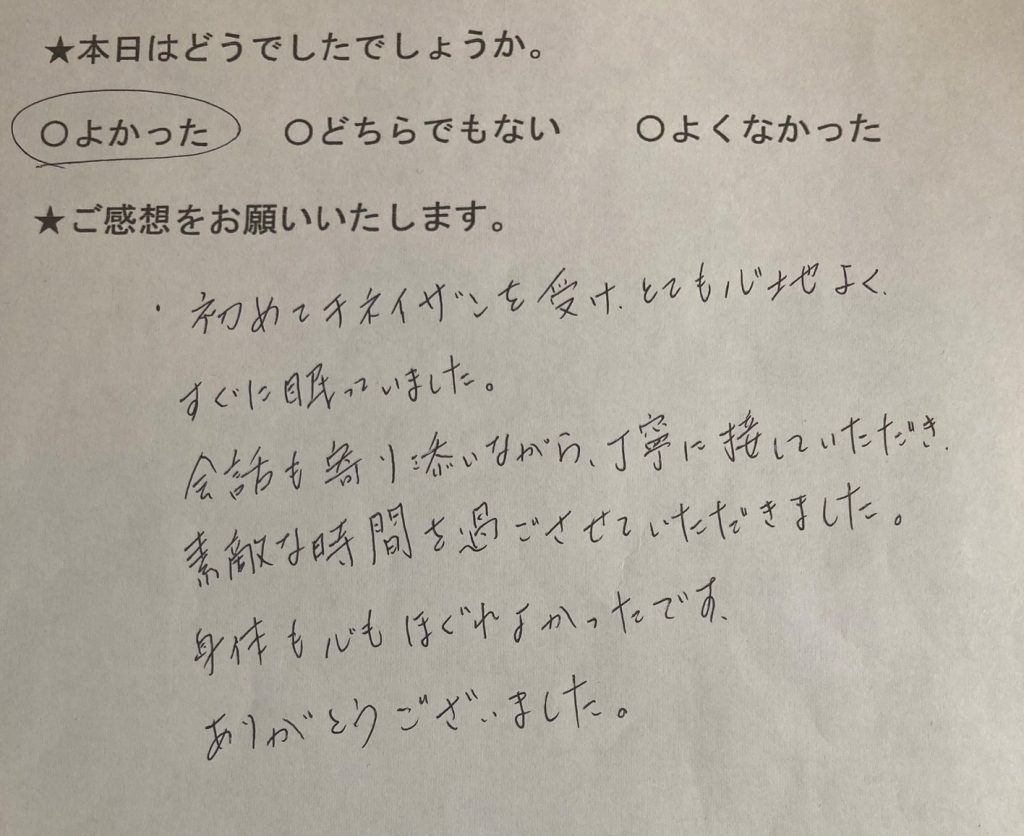 ★本日はどうでしたでしょうか。
○よかった ○どちらでもない ○よくなかった
★ご感想をお願いいたします。
・初めてチネイザンを受け、とても心地よく、
すぐに眠っていました。
会話も寄り添いながら、丁寧に接していただき、
素敵な時間を過ごさせていただきました。
身体も心もほぐれよかったです、
ありがとうございました。